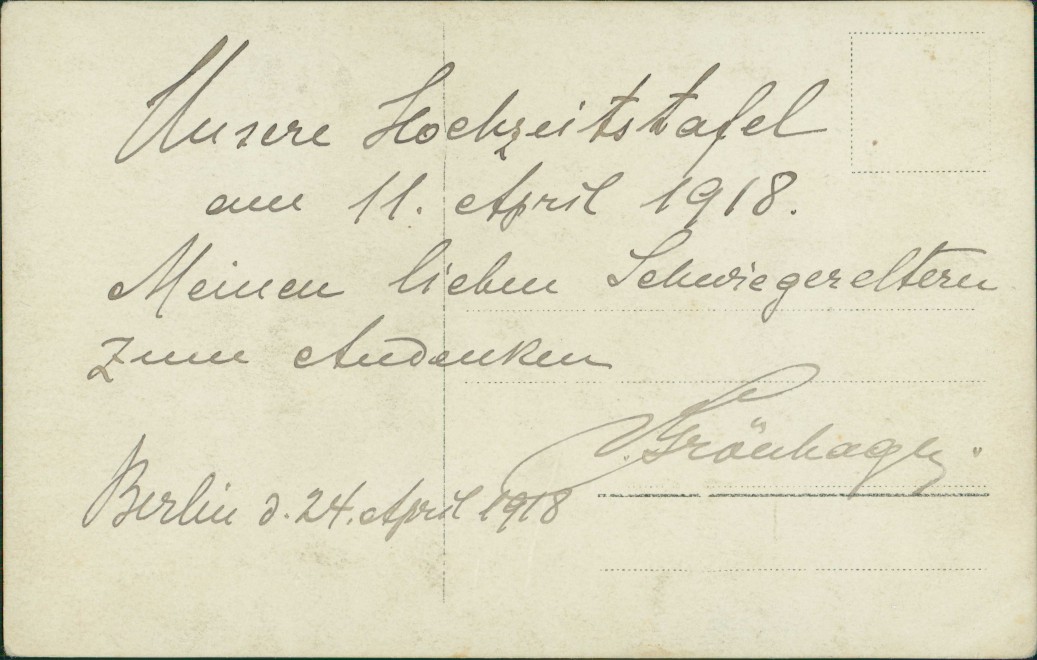 Unsere Hochzeitstafel
am 11. April 1918.
Meinen lieben Schwiegereltern
zum Andenken
Grönhagen
Berlin d. 24. April 1918